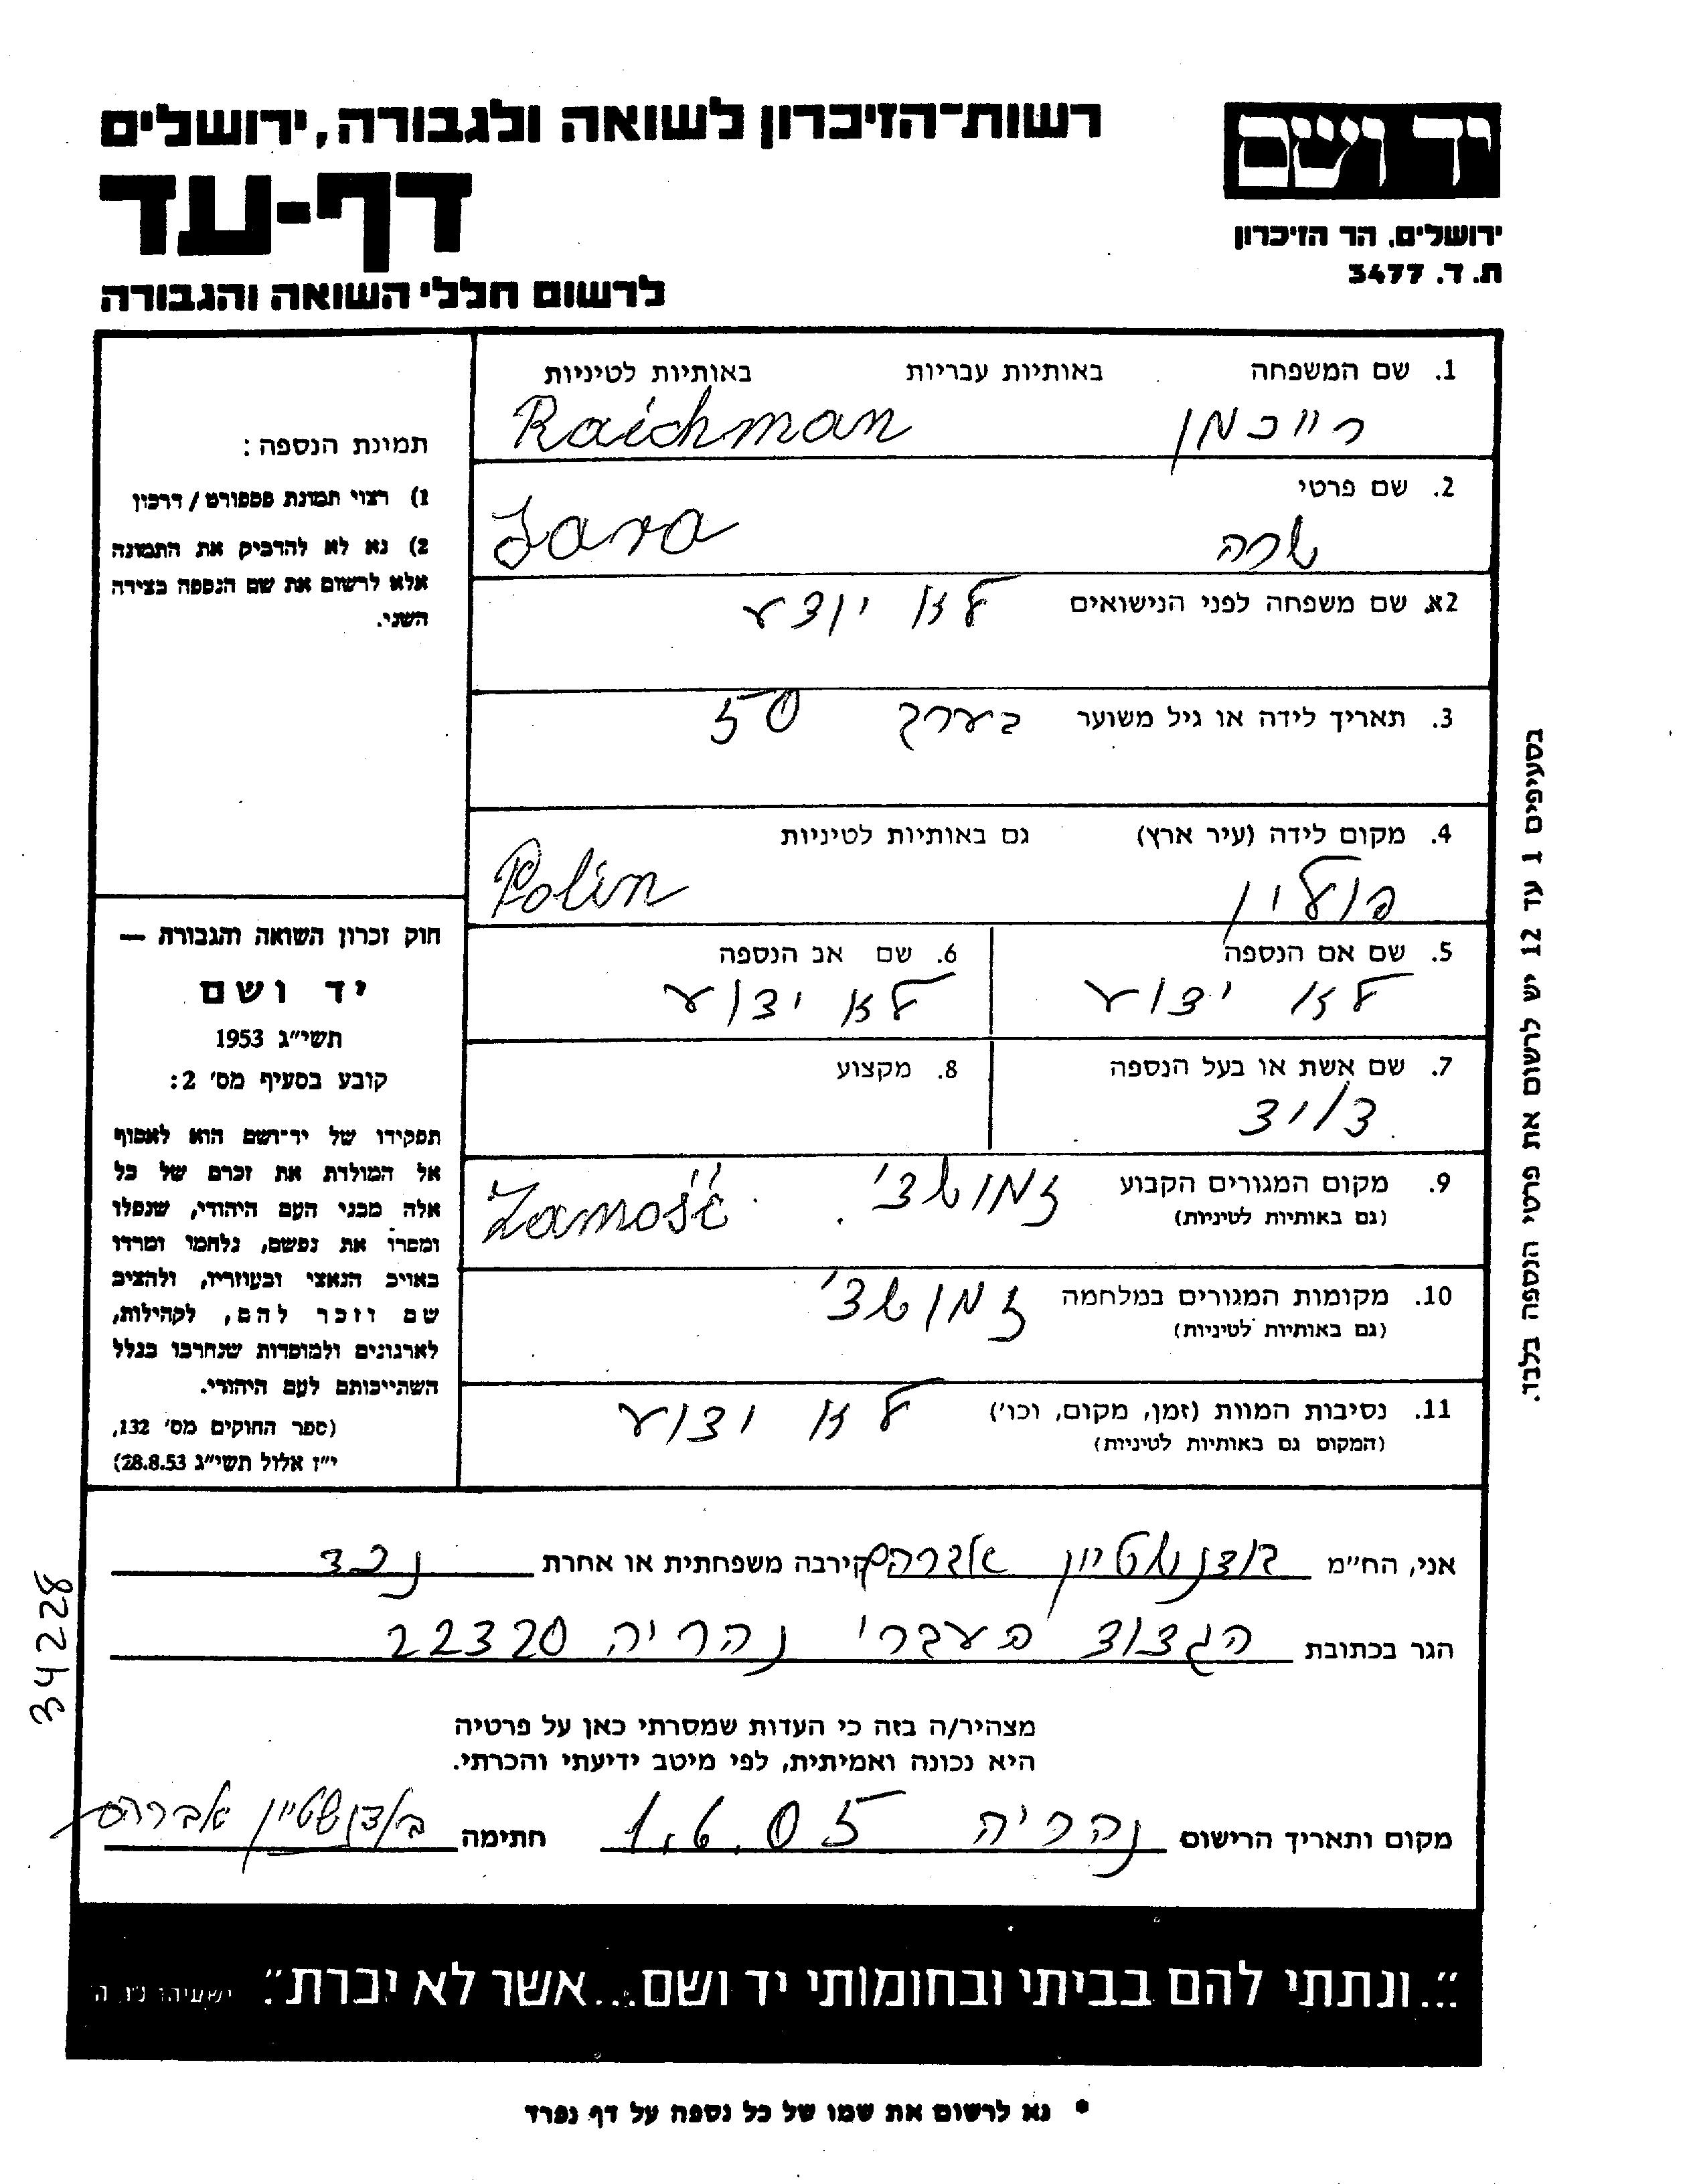 רשות־הזיכרון לשואה ולגבורה, ירושלים
דף-עד
לרשום חללי השואה והגבורה
יד ושם
ירושלים, הר הזיכרון
ת. ד. 3477
1. שם המשפחה באותיות עבריות באותיות לטיניות
רייכמן Raichman
2. שם פרטי
שרה Sara
2א. שם משפחה לפני הנישואים לא יודע
3. תאריך לידה או גיל משוער בערך 50
4. מקום לידה (עיר ארץ) גם באותיות לטיניות
פולין Polin
5. שם אם הנספה 6. שם אב הנספה
לא ידוע לא ידוע
7. שם אשת או בעל הנספה 8. מקצוע
דויד
9. מקום המגורים הקבוע זמושצ' Zamość
(גם באותיות לטיניות)
10. מקומות המגורים במלחמה זמושצ'
(גם באותיות לטיניות)
11. נסיבות המוות (זמן, מקום, וכו') לא ידוע
(המקום גם באותיות לטיניות)
תמונת הנספה:
1) רצוי תמונת פספורט / דרכון
2) נא לא להדביק את התמונה
אלא לרשום את שם הנספה בצידה
השני.
חוק זכרון השואה והגבורה —
יד ושם
תשי"ג 1953
קובע בסעיף מס' 2:
תפקידו של יד־ושם הוא לאסוף
אל המולדת את זכרם של כל
אלה מבני העם היהודי, שנפלו
ומסרו את נפשם, נלחמו ומרדו
באויב הנאצי ובעוזריו, ולהציב
שם וזכר להם, לקהילות,
לארגונים ולמוסדות שנחרבו בגלל
השתייכותם לעם היהודי.
(ספר החוקים מס' 132,
י"ז אלול תשי"ג 28.8.53)
בסעיפים 1 עד 12 יש לרשום את פרטי הנספה בלבד.
אני, הח"מ בודנשטיין אברהם קירבה משפחתית או אחרת נכד
הגר בכתובת הגדוד העברי נהריה 22320
מצהיר/ה בזה כי העדות שמסרתי כאן על פרטיה
היא נכונה ואמיתית, לפי מיטב ידיעתי והכרתי.
מקום ותאריך הרישום נהריה 1.6.05 חתימה בודנשטיין אברהם
34228
"...ונתתי להם בביתי ובחומותי יד ושם...אשר לא יכרת". ישעיהו נו, ה
* נא לרשום את שמו של כל נספה על דף נפרד